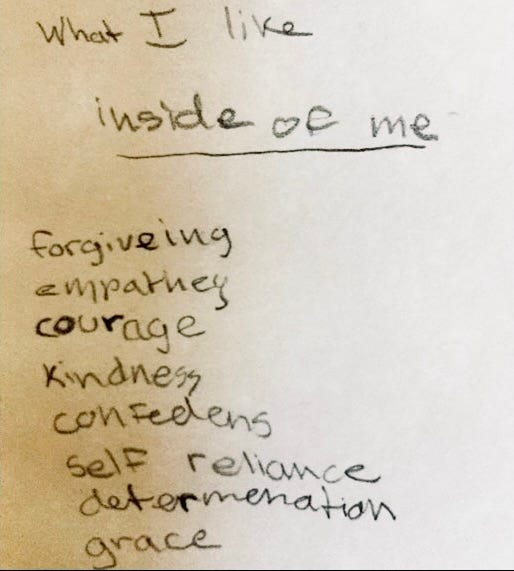 What I like
inside of me
forgiveing
empathey
courage
kindness
confedens
self reliance
determenation
grace